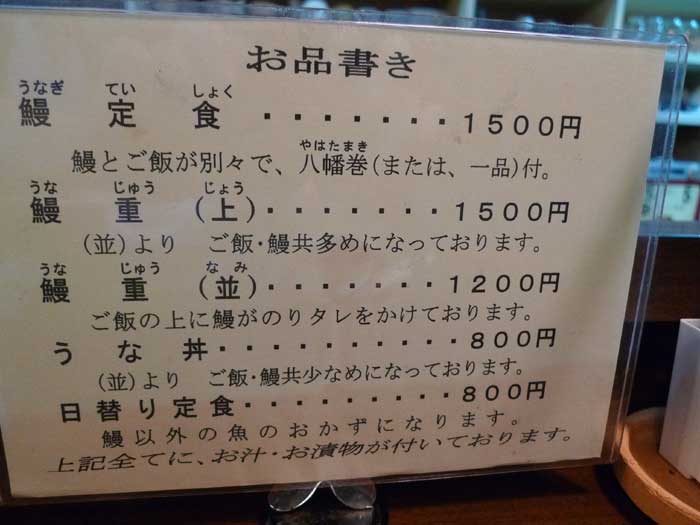 お品書き
うなぎ てい しょく
鰻 定 食 ・・・・・・・1500円
やはたまき
鰻とご飯が別々で、八幡巻(または、一品)付。
うな じゅう じょう
鰻 重 (上)・・・・・・・・1500円
(並)より ご飯・鰻共多めになっております。
うな じゅう なみ
鰻 重 (並)・・・・・・・・1200円
ご飯の上に鰻がのりタレをかけております。
うな丼・・・・・・・・・・800円
(並)より ご飯・鰻共少なめになっております。
日替り定食・・・・・・・・・800円
鰻以外の魚のおかずになります。
上記全てに、お汁・お漬物が付いております。